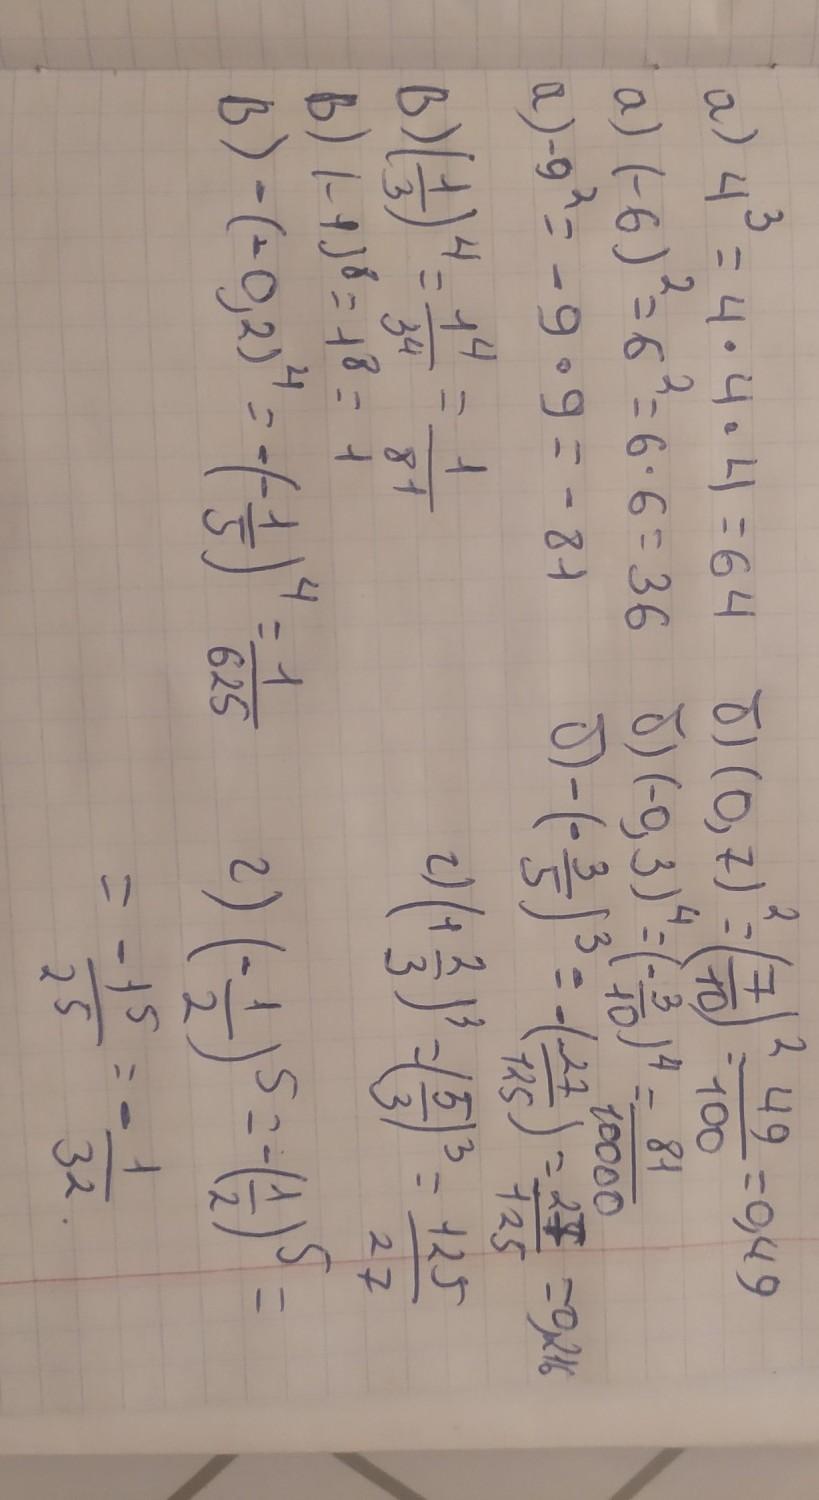 а) 4³ = 4 · 4 · 4 = 64
б) (0,7)² = (7/10)² = 49/100 = 0,49
а) (-6)² = 6² = 6 · 6 = 36
б) (-0,3)⁴ = (-3/10)⁴ = 81/10000
а) -9² = -9 · 9 = -81
б) -(-3/5)³ = -(27/125) = 27/125 = 0,216
в) (1/3)⁴ = 1⁴/3⁴ = 1/81
г) (1 2/3)³ = (5/3)³ = 125/27
в) (-1)⁸ = 1⁸ = 1
в) -(-0,2)⁴ = -(-1/5)⁴ = 1/625
г) (-1/2)⁵ = -(1/2)⁵ =
= -1⁵/2⁵ = -1/32.